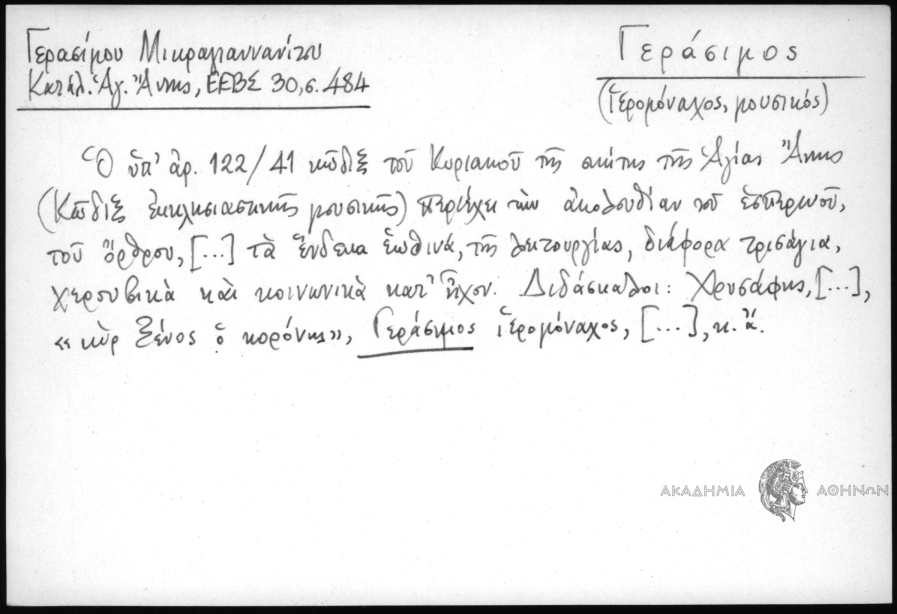 Γερασίμου Μικραγιαννανίτου
Κατάλ. Ἁγ. Ἄννης, ΕΕΒΣ 30, σ. 484
Γεράσιμος
(ἱερομόναχος, μουσικός)
Ὁ ὑπ' ἀρ. 122/41 κῶδιξ τοῦ Κυριακοῦ τῆς σκήτης τῆς Ἁγίας Ἄννης
(Κῶδιξ ἐκκλησιαστικῆς μουσικῆς) περιέχει τὴν ἀκολουθίαν τοῦ ἑσπερινοῦ,
τοῦ ὄρθρου, [...] τὰ ἕνδεκα ἑωθινά, τῆς λειτουργίας, διάφορα τρισάγια,
χερουβικὰ καὶ κοινωνικὰ κατ' ἦχον. Διδάσκαλοι: Χρυσάφης, [...],
«κὺρ Ξένος ὁ κορώνης», Γεράσιμος ἱερομόναχος, [...], κ.ἄ.
ΑΚΑΔΗΜΙΑ ΑΘΗΝΩΝ